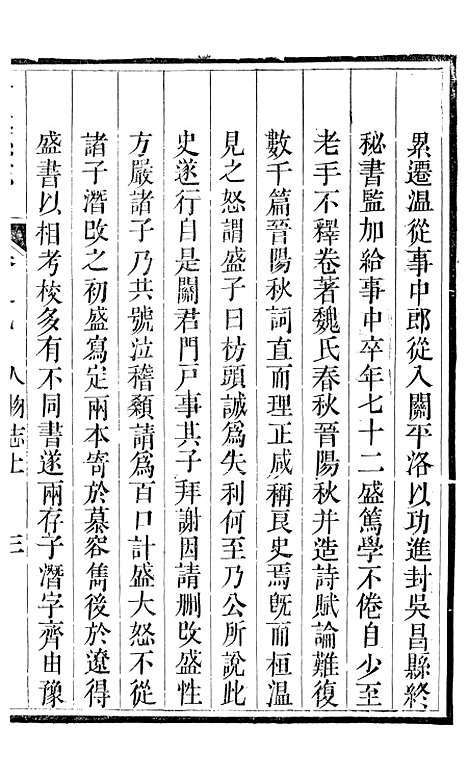 累遷温從事中郎從入關平洛以功進封吳昌縣終
秘書監加給事中卒年七十二盛篤學不倦自少至
老手不釋卷著魏氏春秋晉陽秋并造詩賦論難復
數千篇晉陽秋詞直而理正咸稱良史焉旣而桓温
見之怒謂盛子曰枋頭誠爲失利何至乃公所說此
史遂行自是關君門戸事其子拜謝因請删改盛性
方嚴諸子乃共號泣稽顙請爲百口計盛大怒不從
諸子潛改之初盛寫定兩本寄於慕容雋後於遼得
盛書以相考校多有不同書遂兩存子潛字齊由豫
人物志上 三